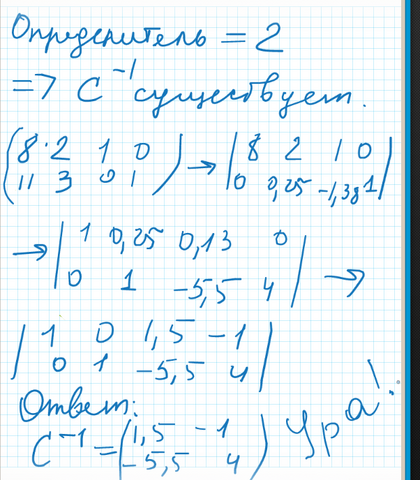 Определитель = 2
=> C⁻¹ существует.
(8 · 2 1 0
11 3 0 1) → |8 2 1 0
0 0,25 -1,38 1|
→ |1 0,25 0,13 0
0 1 -5,5 4| →
|1 0 1,5 -1
0 1 -5,5 4|
Ответ:
C⁻¹ = (1,5 -1
-5,5 4) Ура!